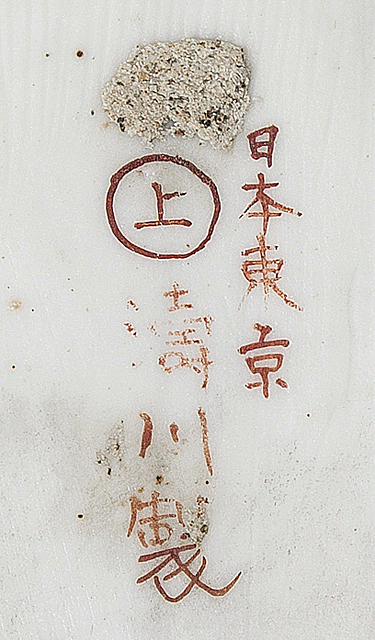 日本東京
上
濤川製